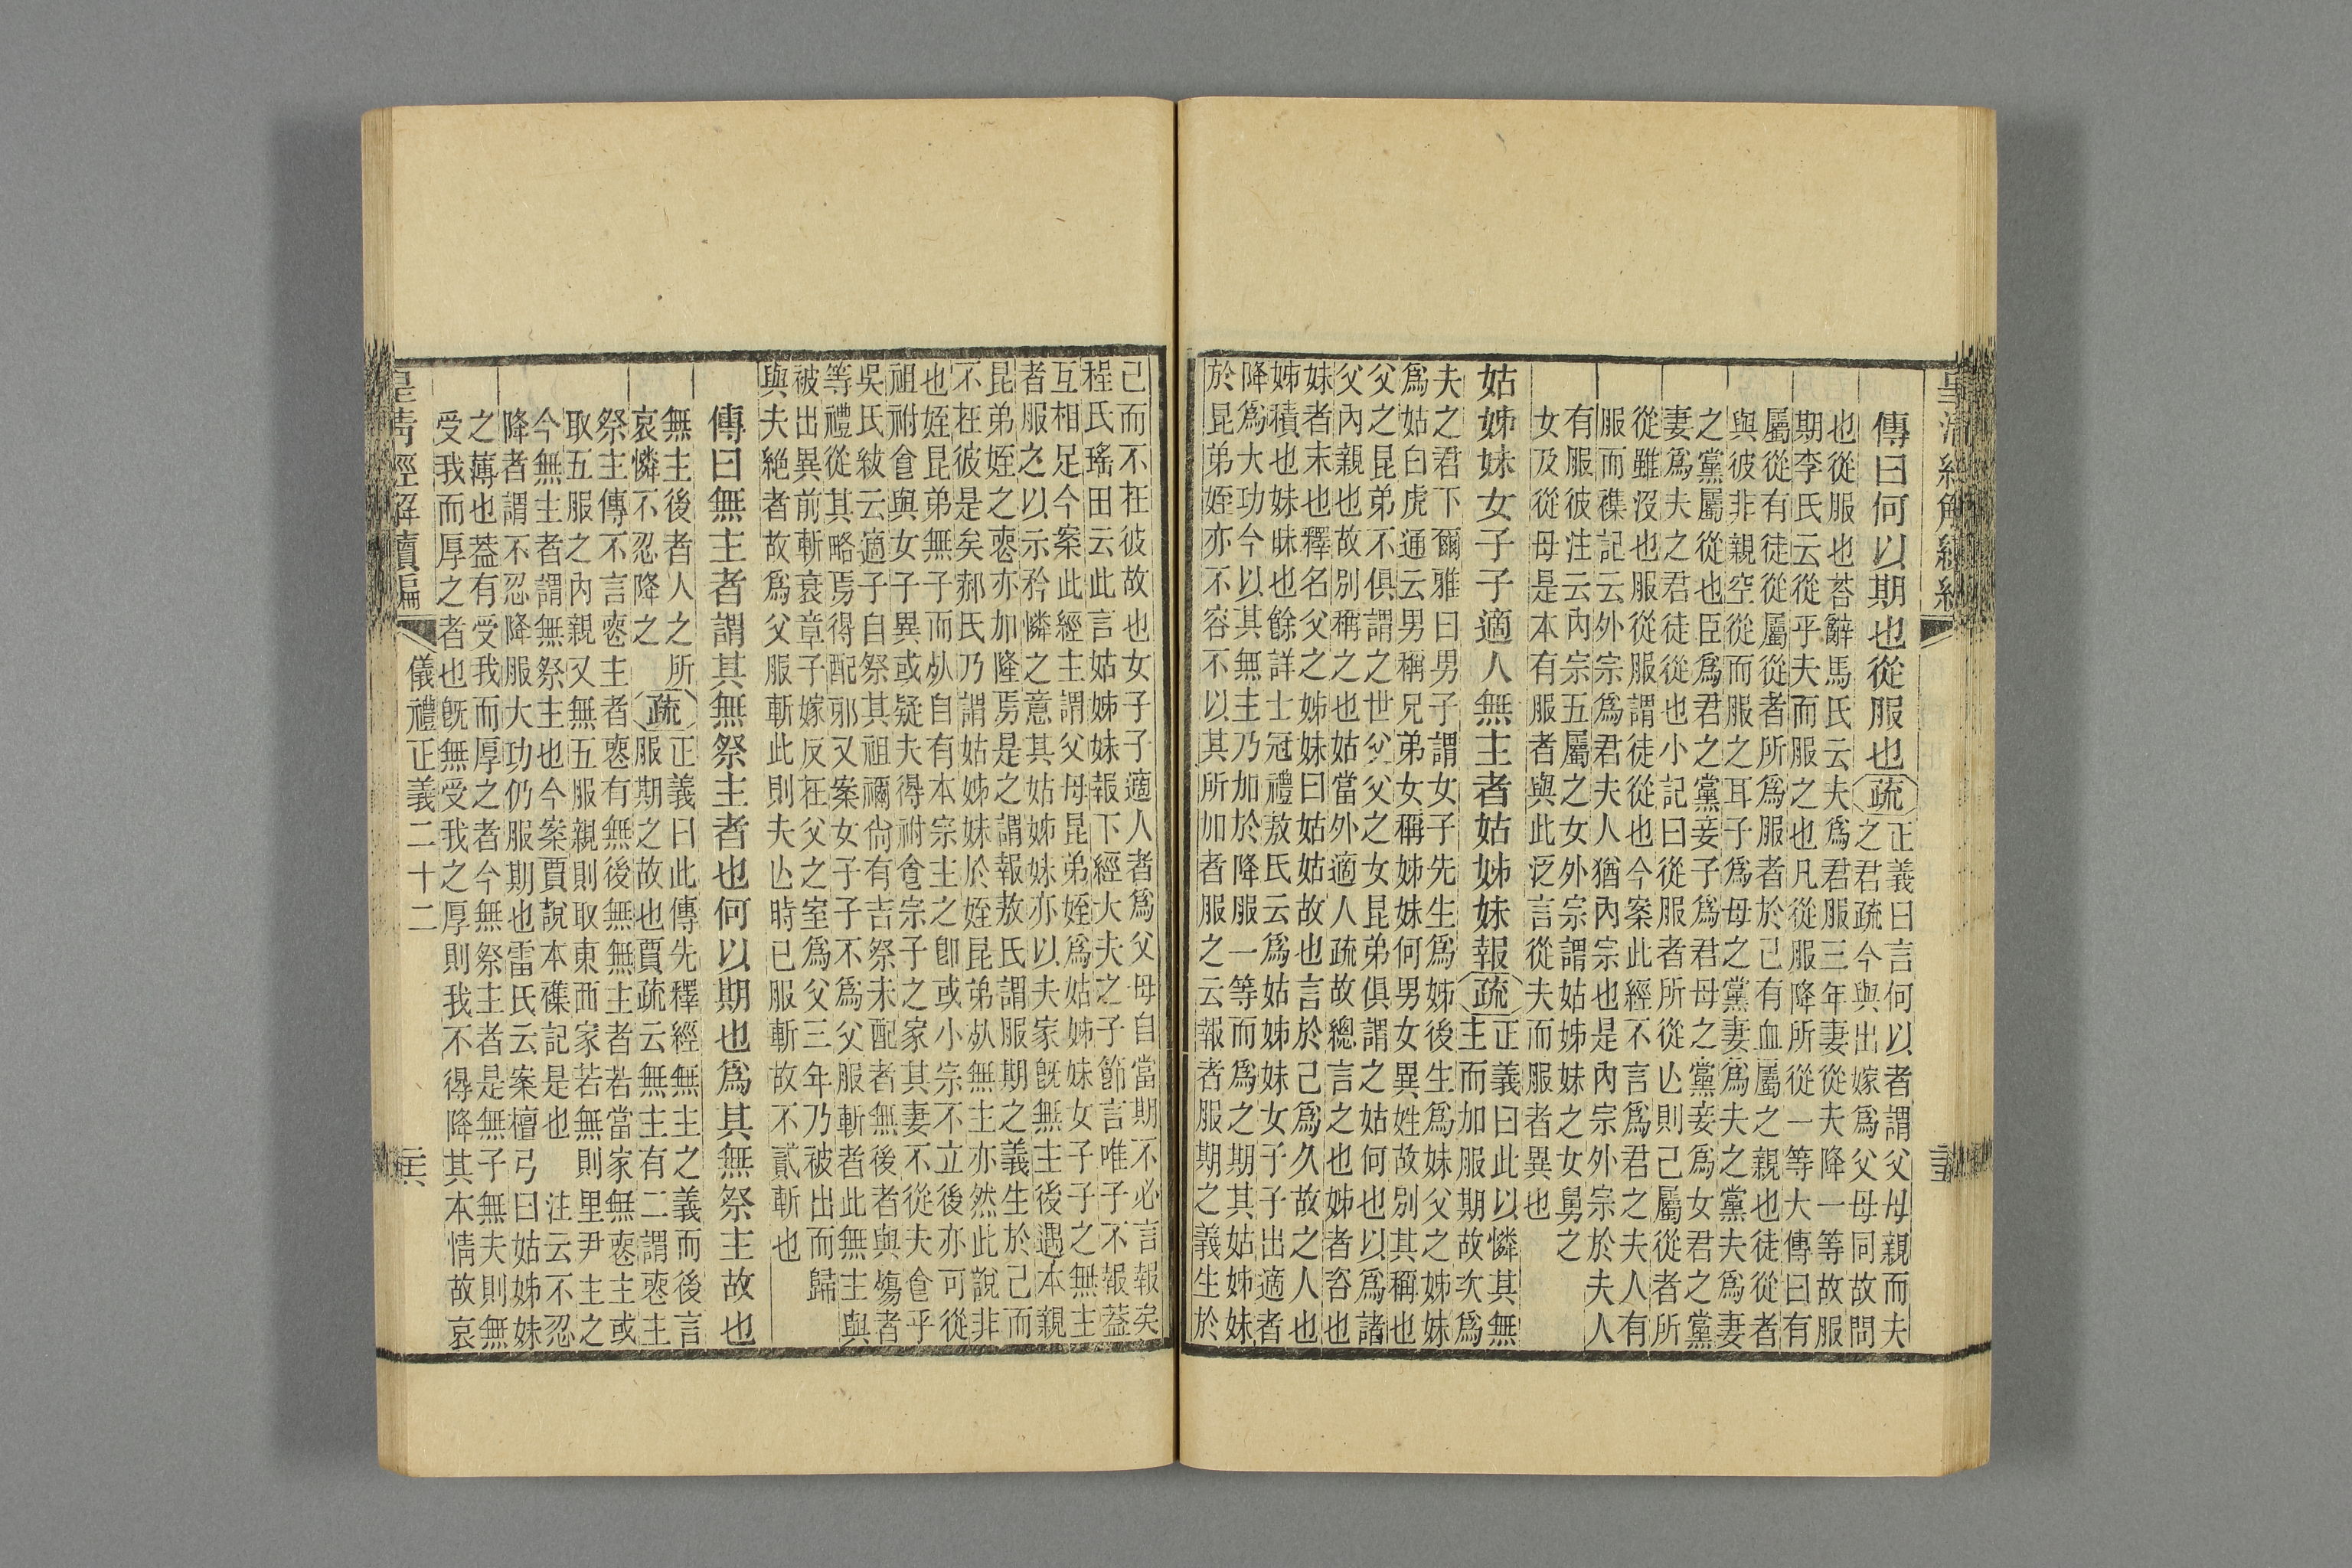 皇清經解續編
傳曰何以期也從服也疏正義曰言何以者謂父母親而夫
之君疏今與出嫁爲父母同故問
也從服也荅辭馬氏云夫爲君服三年妻從夫降一等故服
期李氏云從乎夫而服之也凡從服降所從一等大傳曰有
屬從有徒從屬從者所爲服者於己有血屬之親也徒從者
與彼非親空從而服之耳子爲母之黨妻爲夫之黨夫爲妻
之黨屬從也臣爲君之黨妾子爲君母之黨妾爲女君之黨
妻爲夫之君徒從也小記曰從服者所從亾則己屬從者所
從雖沒也服從服謂徒從也今案此經不言爲君之夫人有
服而襍記云外宗爲君夫人猶內宗也是內宗外宗於夫人
有服彼注云內宗五屬之女外宗謂姑姊妹之女舅之
女及從母是本有服者與此泛言從夫而服者異也
姑姊妹女子子適人無主者姑姊妹報疏正義曰此以憐其無
主而加服期故次爲
夫之君下爾雅曰男子謂女子先生爲姊後生爲妹父之姊妹
爲姑白虎通云男稱兄弟女稱姊妹何男女異姓故別其稱也
父之昆弟不俱謂之世父父之女昆弟俱謂之姑何也以爲諸
父內親也故別稱之也姑當外適人疏故總言之也姊者咨也
妹者末也釋名父之姊妹曰姑姑故也言於己爲久故之人也
姊積也妹昧也餘詳士冠禮敖氏云爲姑姊妹女子子出適者
降爲大功今以其無主乃加於降服一等而爲之期其姑姊妹
於昆弟姪亦不容不以其所加者服之云報者服期之義生於
己而不在彼故也女子子適人者爲父母自當期不必言報矣
程氏瑤田云此言姑姊妹報下經大夫之子節言唯子不報葢
互相足今案此經主謂父母昆弟姪爲姑姊妹女子子之無主
者服之以示矜憐之意其姑姊妹亦以夫家旣無主後遇本親
昆弟姪之喪亦加隆焉是之謂報敖氏謂服期之義生於己而
不在彼是矣郝氏乃謂姑姊妹於姪昆弟無主亦然此說非
也姪昆弟無子而亾自有本宗主之卽或小宗不立後亦可從
祖祔食與女子異或疑夫得祔食宗子之家其妻不從夫食乎
吳氏紱云適子自祭其祖禰尙有吉祭未配者無後者與殤者
等禮從其略焉得配邪又案女子子不爲父服斬者此無主與
被出異前斬衰章子嫁反在父之室爲父三年乃被出而歸
與夫絕者故爲父服斬此則夫亾時已服斬故不貳斬也
傳曰無主者謂其無祭主者也何以期也爲其無祭主故也
無主後者人之所
哀憐不忍降之疏正義曰此傳先釋經無主之義而後言
服期之故也賈疏云無主有二謂喪主
祭主傳不言喪主者喪有無後無無主者若當家無喪主或
取五服之內親又無五服親則取東西家若無則里尹主之
今無主者謂無祭主也今案賈說本襍記是也注云不忍
降者謂不忍降服大功仍服期也雷氏云案檀弓曰姑姊妹
之薄也葢有受我而厚之者今無祭主者是無子無夫則無
受我而厚之者也旣無受我之厚則我不得降其本情故哀
皇清經解續編
儀禮正義二十二